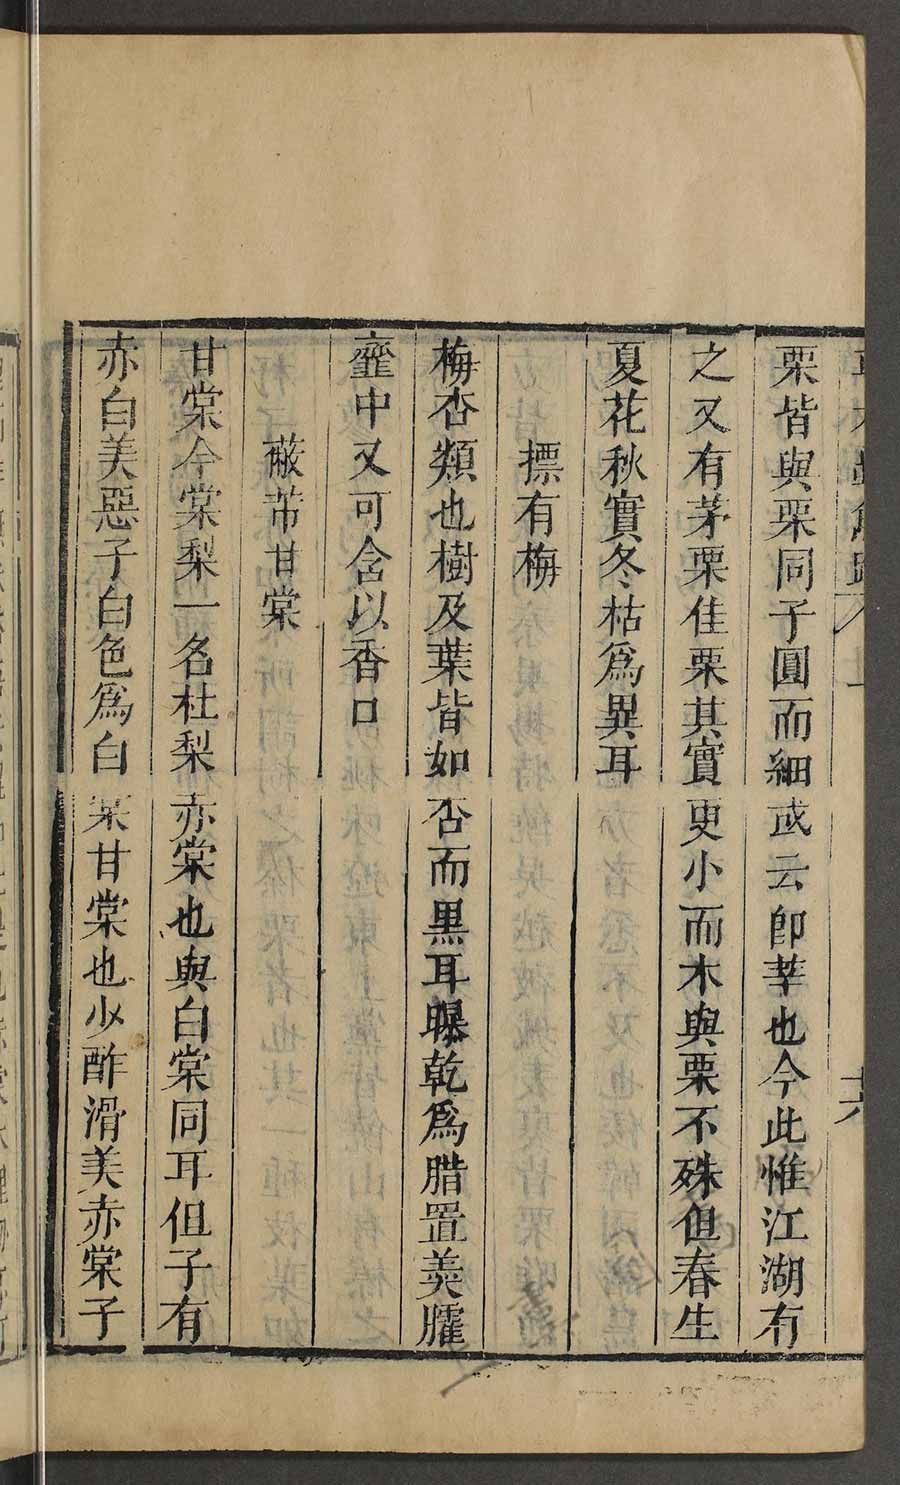 栗皆與栗同子圓而細或云卽莘也今此惟江湖有
之又有茅栗佳栗其實更小而木與栗不殊但春生
夏花秋實冬枯爲異耳
摽有梅
梅杏類也樹及葉皆如杏而黒耳曝乾爲腊置羮臛
虀中又可含以香口
蔽芾甘棠
甘棠今棠梨一名杜梨赤棠也與白棠同耳但子有
赤白美惡子白色爲白棠甘棠也少酢滑美赤棠子